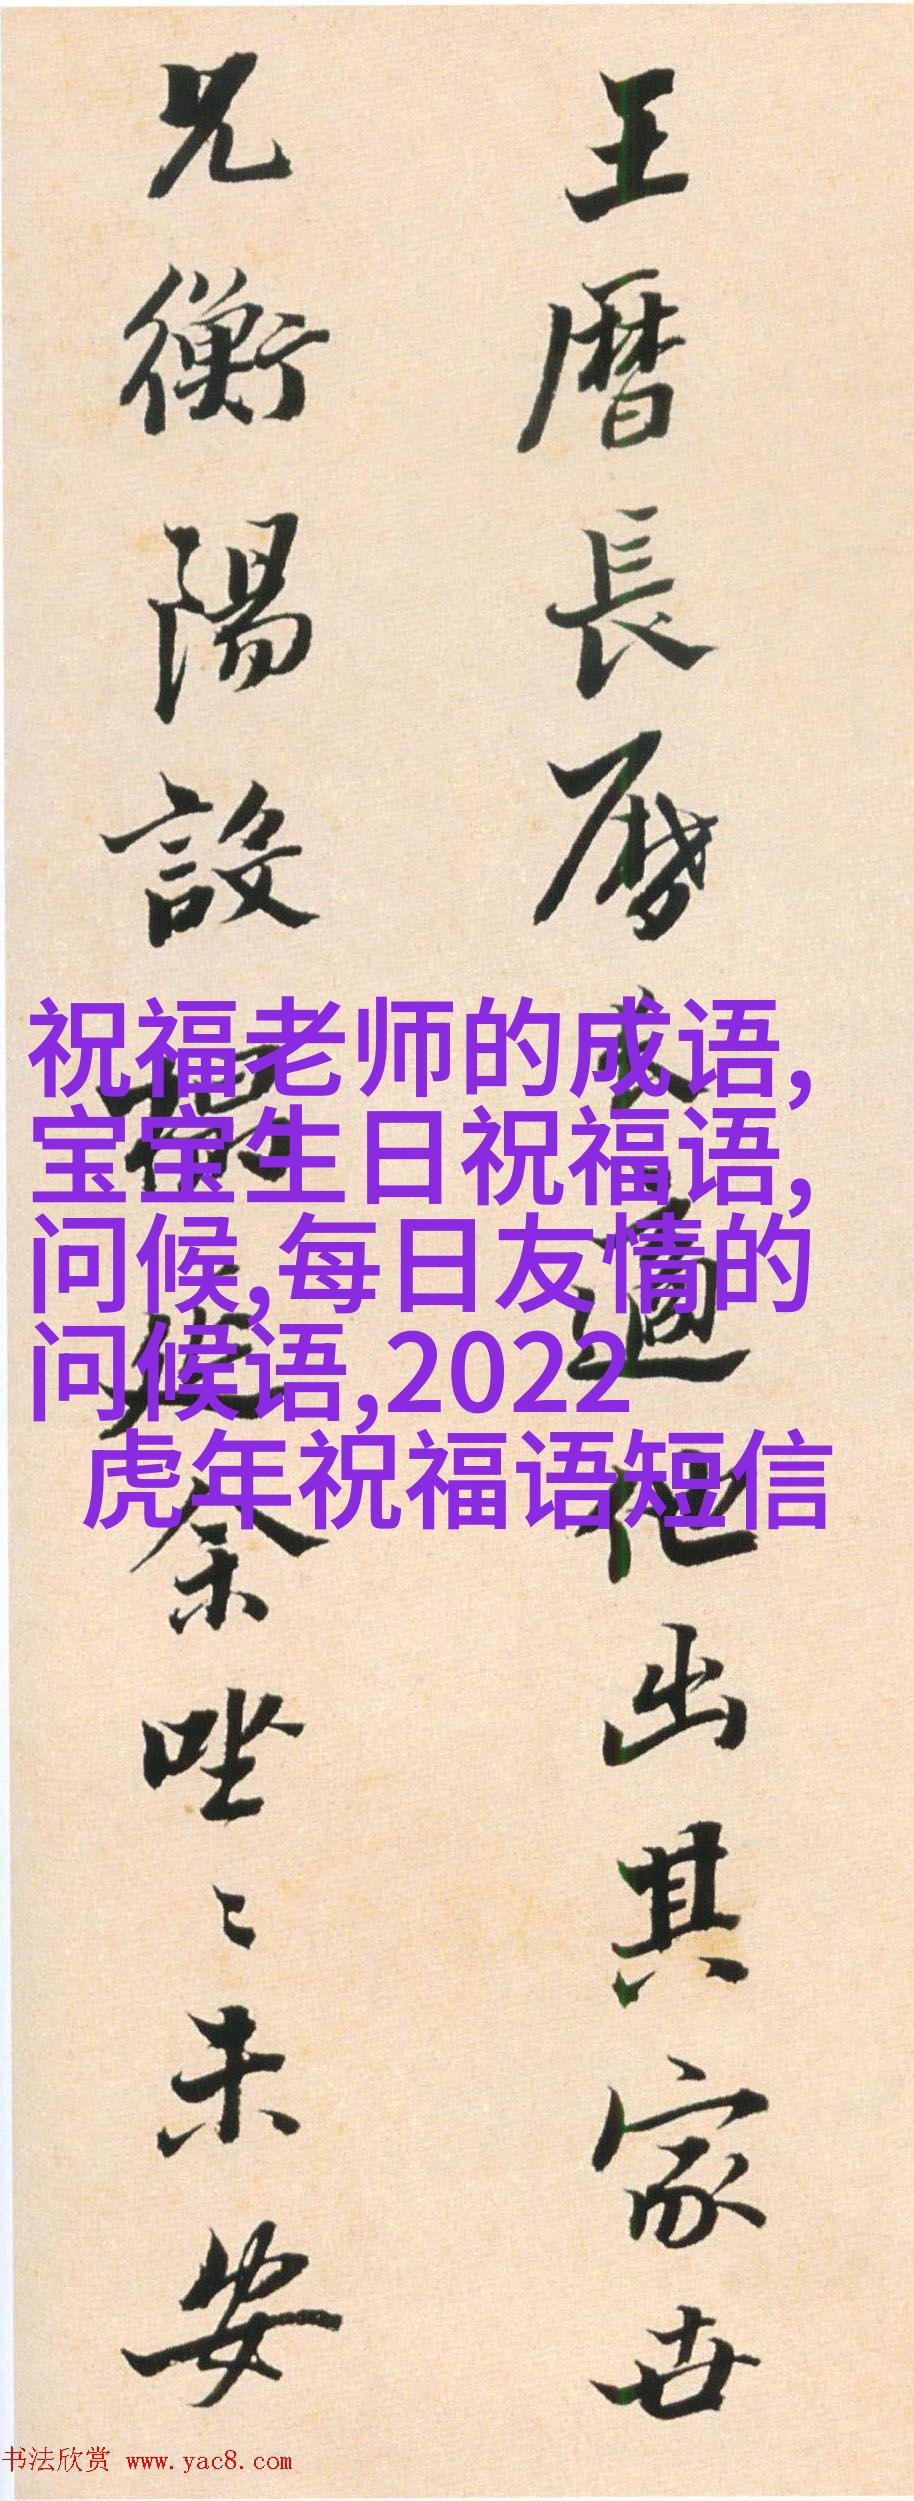 王曆長曆
適他出其家世
兄衡陽設
余唑〻未安
祝福老师的成语,
宝宝生日祝福语,
问候,每日友情的
问候语,2022
虎年祝福语短信
书法欣赏 www.yac8.com